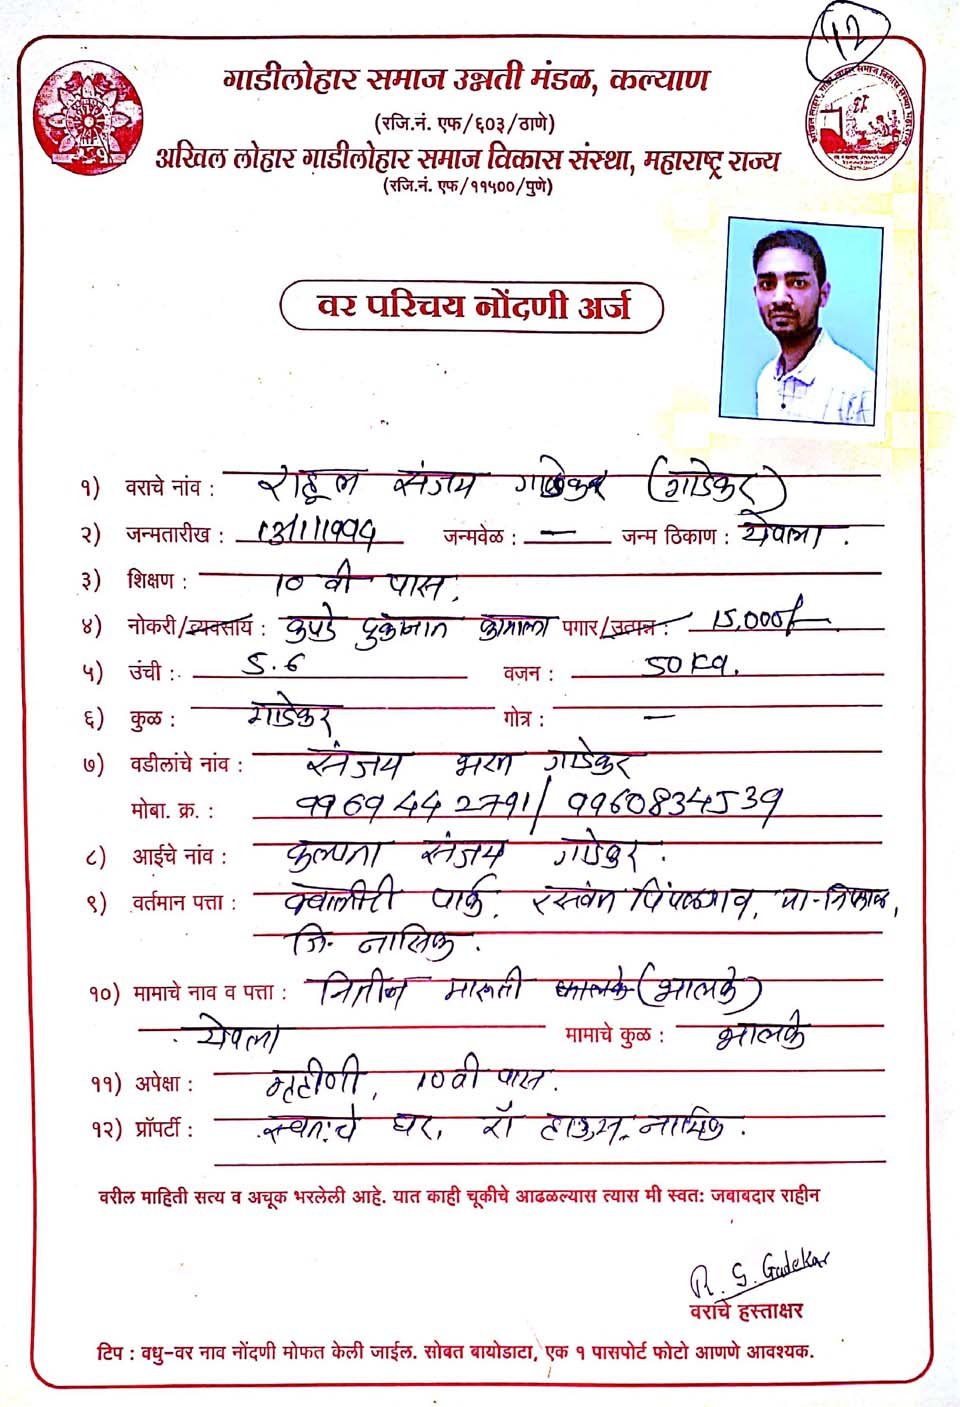 12
गाडीलोहार समाज उन्नती मंडळ, कल्याण
(रजि.नं. एफ/६०३/ठाणे)
अखिल लोहार गाडीलोहार समाज विकास संस्था, महाराष्ट्र राज्य
(रजि.नं. एफ/११५००/पुणे)
वर परिचय नोंदणी अर्ज
१) वराचे नांव : राहूल संजय गाडेकर (गाडेकर)
२) जन्मतारीख : 13/11/1994 जन्मवेळ : — जन्म ठिकाण : येवला.
३) शिक्षण : 10 वी पास.
४) नोकरी/व्यवसाय : कपडे दुकानात कामाला पगार/उत्पन्न : 15,000/-
५) उंची : 5.6 वजन : 50 kg.
६) कुळ : गाडेकर गोत्र : —
७) वडीलांचे नांव : संजय गाडेकर
मोबा. क्र. : 9969442791/9960834539
८) आईचे नांव : कल्पना संजय गाडेकर.
९) वर्तमान पत्ता : क्वालीटी पार्क, पिंपळगाव, ता-निफाड,
जि- नासिक.
१०) मामाचे नाव व पत्ता : नितीन मारुती भालके (भालके)
येवला मामाचे कुळ : भालके
११) अपेक्षा : गृहीणी, 10वी पास.
१२) प्रॉपर्टी : स्वताःचे घर, नासिक.
वरील माहिती सत्य व अचूक भरलेली आहे. यात काही चूकीचे आढळल्यास त्यास मी स्वतः जबाबदार राहीन
R. S. Gadekar
वराचे हस्ताक्षर
टिप : वधु-वर नाव नोंदणी मोफत केली जाईल. सोबत बायोडाटा, एक १ पासपोर्ट फोटो आणणे आवश्यक.